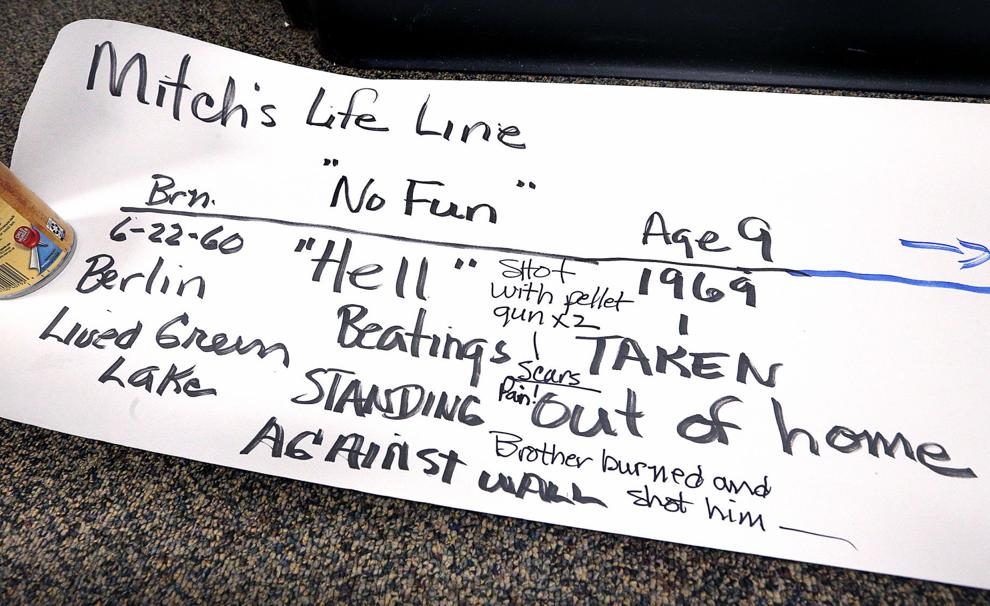 Mitch's Life Line
"No Fun"
Brn.
6-22-60
Berlin
Lived Green
Lake
"Hell"
Beatings
STANDING
AGAINST WALL
Shot
with pellet
gun x2
Scars
Pain!
Age 9
1969
TAKEN
out of home
Brother burned and
shot him